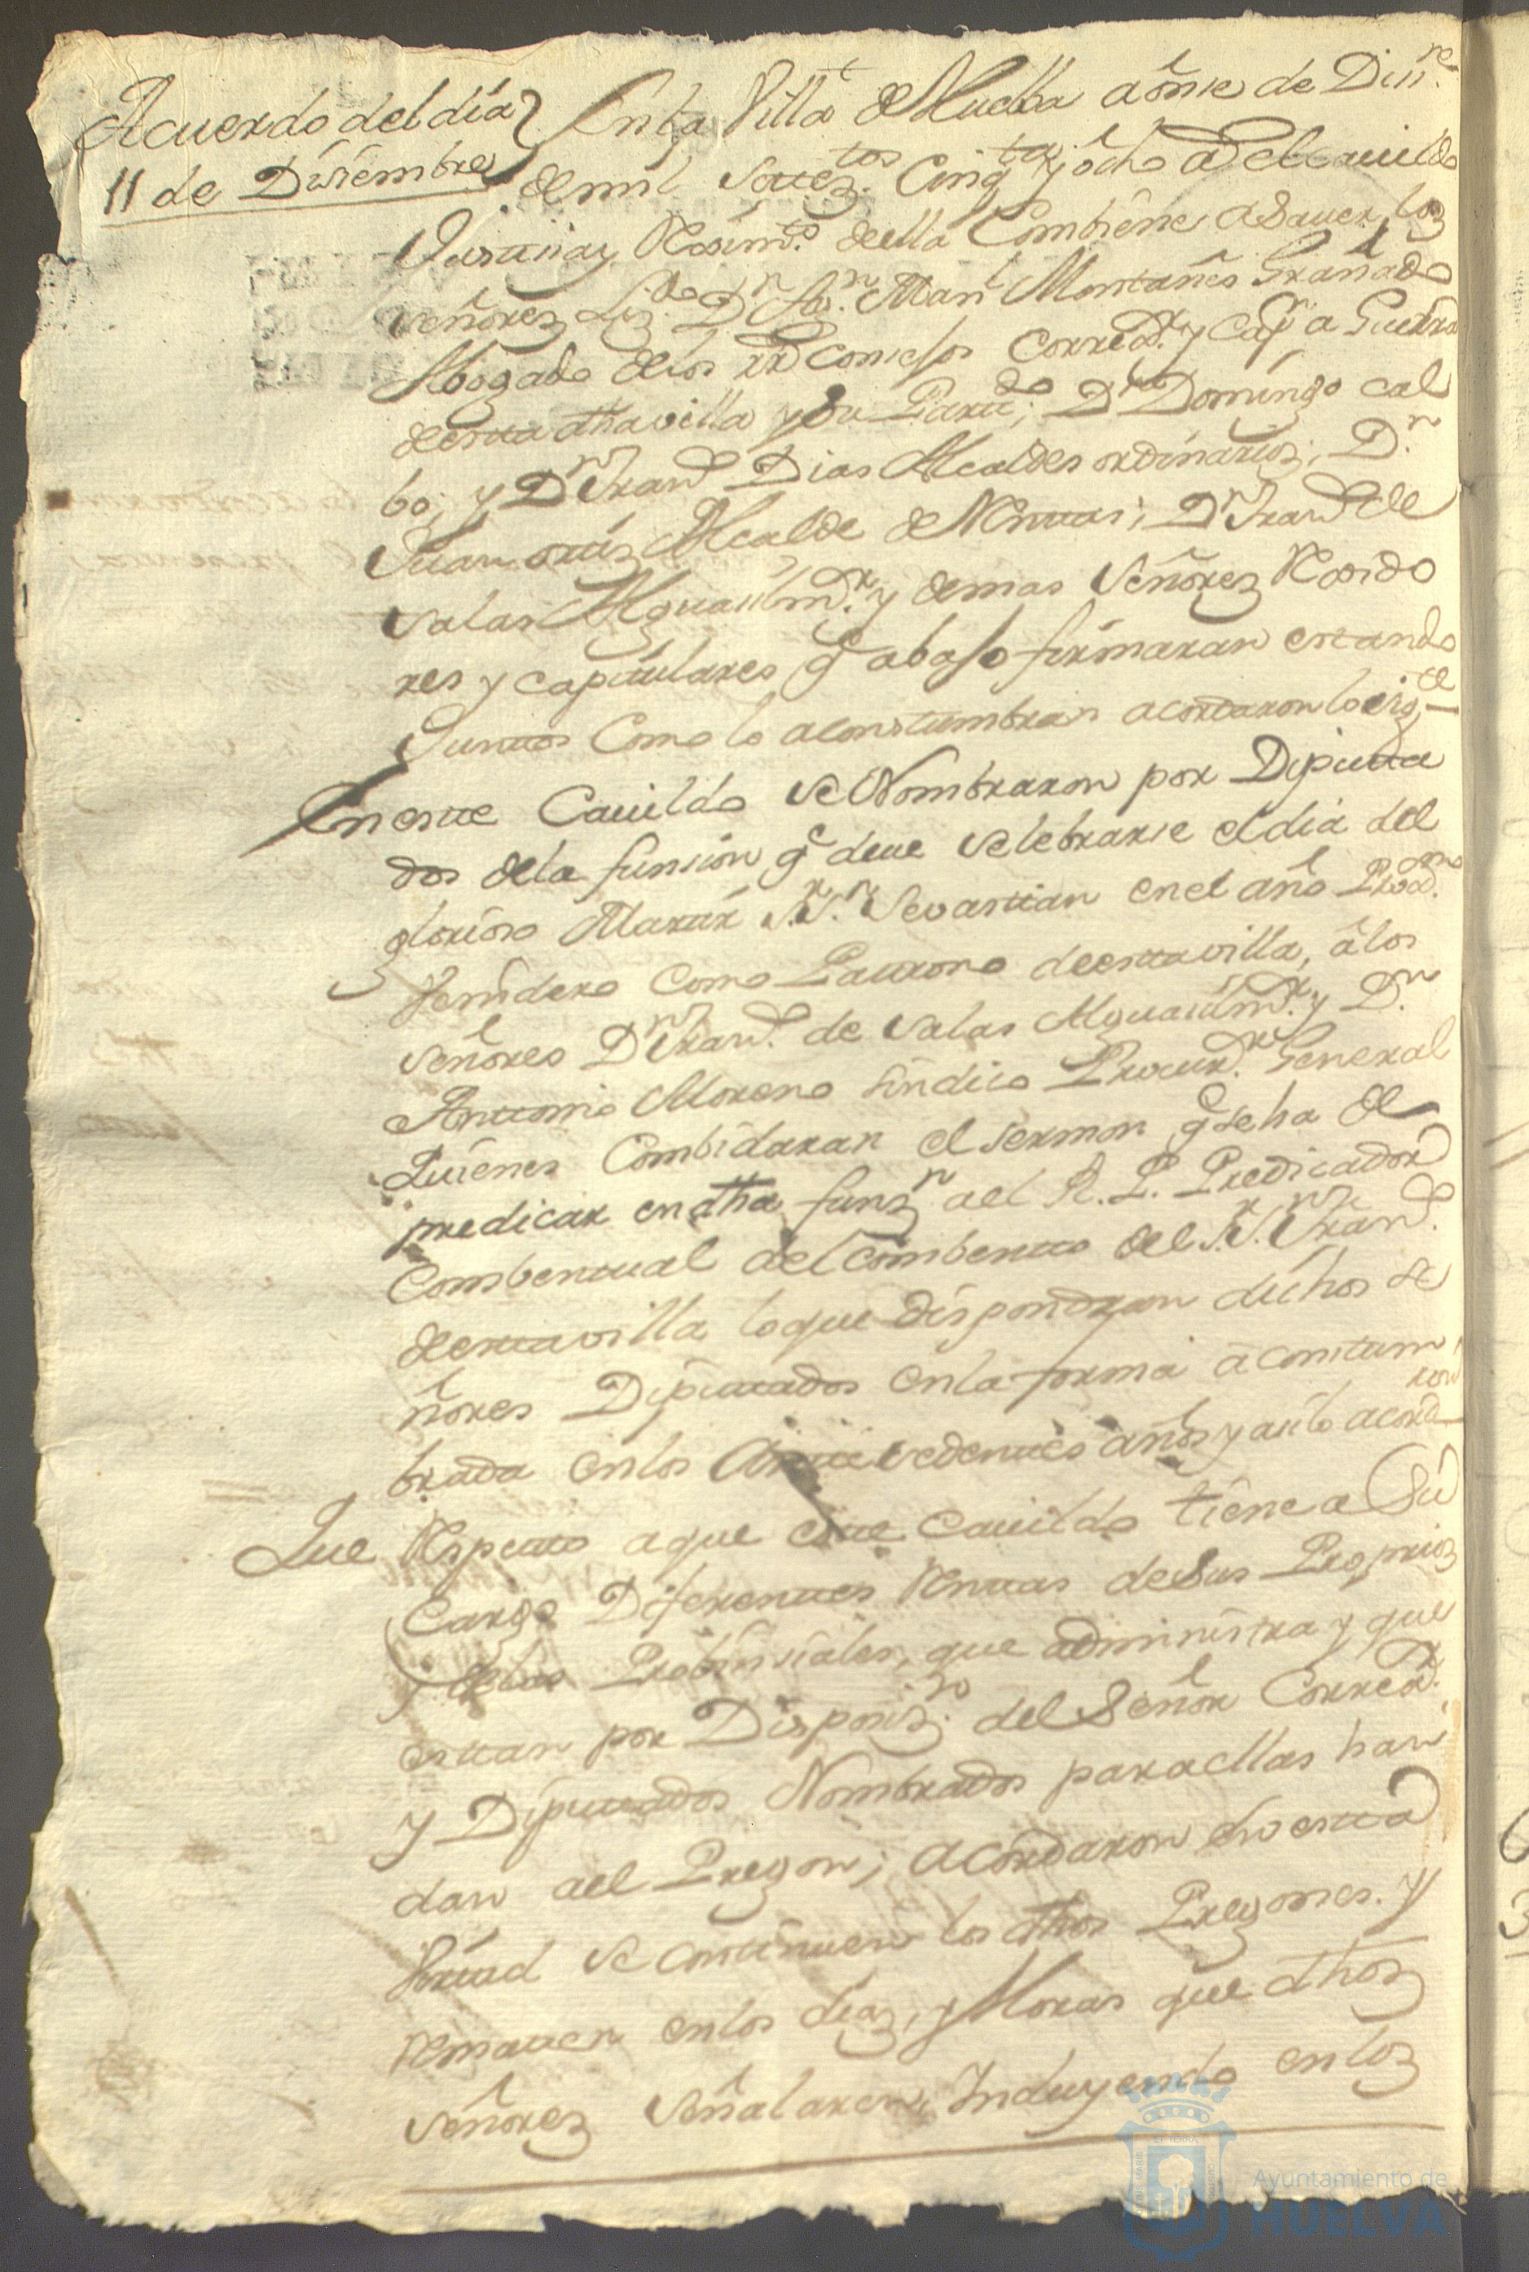 Acuerdo del día
11 de Disiembre
En la Villa de Huelba a onse de Diz.re
de mil Setez.tos Cinq.ta y ócho el Cauildo
Justisia y Rexim.to de ella Combiene a Sauer los
Señores Liz.do D.n Man.l Montañés Granado
Abogado de los RR.s consejos Correx.r y Cap.n a Guerra
de esta dha villa y su Partido; D.n Domíngo cal
bo; y D.n Fran.co Dias Alcaldes ordinarios; D.n
Juan ortiz Alcalde de Rentas; D.n Fran.co de
Salas Alguasil m.r y demas Señores Rexido
res y capitulares q.e abajo firmaran estando
Juntos Como lo acostumbran acordaron lo sig.te
En este Cauildo se Nombraron por Diputa
dos de la funsion q.e deue selebrarse el dia del
glorioso Martir S.r S.n Sevastian en el año Prox.mo
Venidero Como Patrono de esta villa, a los
Señores D.n Fran.co de Salas Alguasil m.r y D.n
Antonio Moreno Síndico Procur.r General
Quienes Combidaran el sermon q.e se ha de
predicar en dha funz.n al R. P. Predicador
Combentual del combento del S.r S.n Fran.co
de esta villa lo que dispondran dichos Se
ñores Diputados en la forma acostum
brada en los Antesedentes años y asi lo acord.ron
Que Respecto a que este Cauildo tiene a Su
Cargo Diferentes Rentas de Sus Proprios
y de las Probinsiales, que administra y que
estan por Disposiz.n del Señor Correx.r
y Diputados Nombrados para ellas han
dan al Pregon; acordaron en esta
Virtud se continuen los dhos Pregones. y
Rematen en los dias, y Horas que dhos
Señores Señalaren, Incluyendo en los
Ayuntamiento de
HUELVA